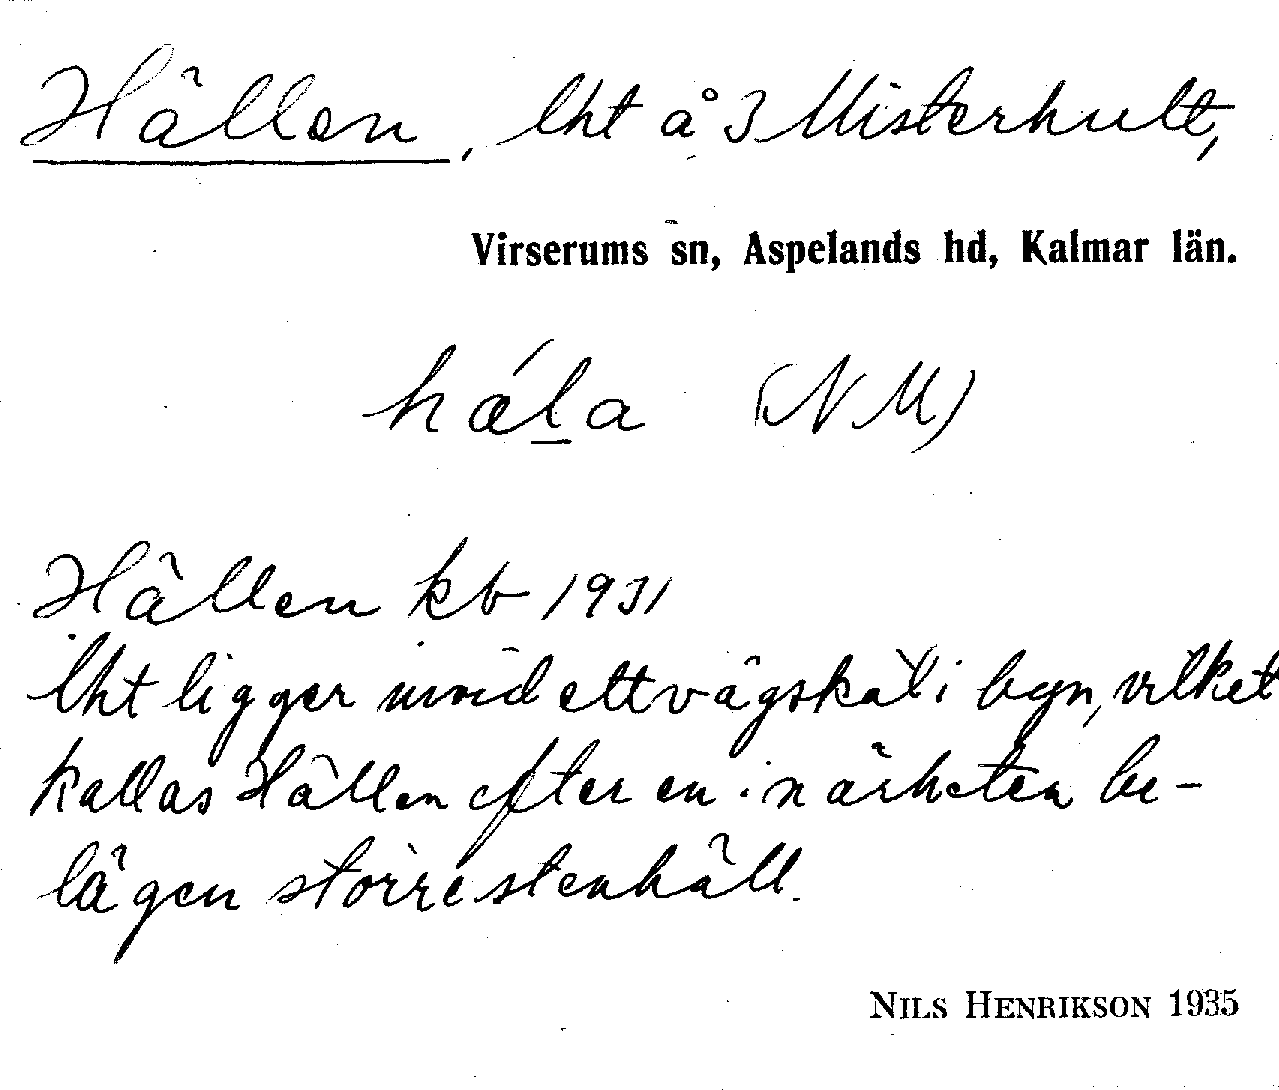 Hällen, lht å 3 Misterhult,
Virserums sn, Aspelands hd, Kalmar län.
hǽl̲a (NM)
Hällen kb 1931
lht ligger invid ett vägskäl i byn, vilket
kallas Hällen efter en i närheten be-
lägen större stenhäll.
NILS HENRIKSON 1935